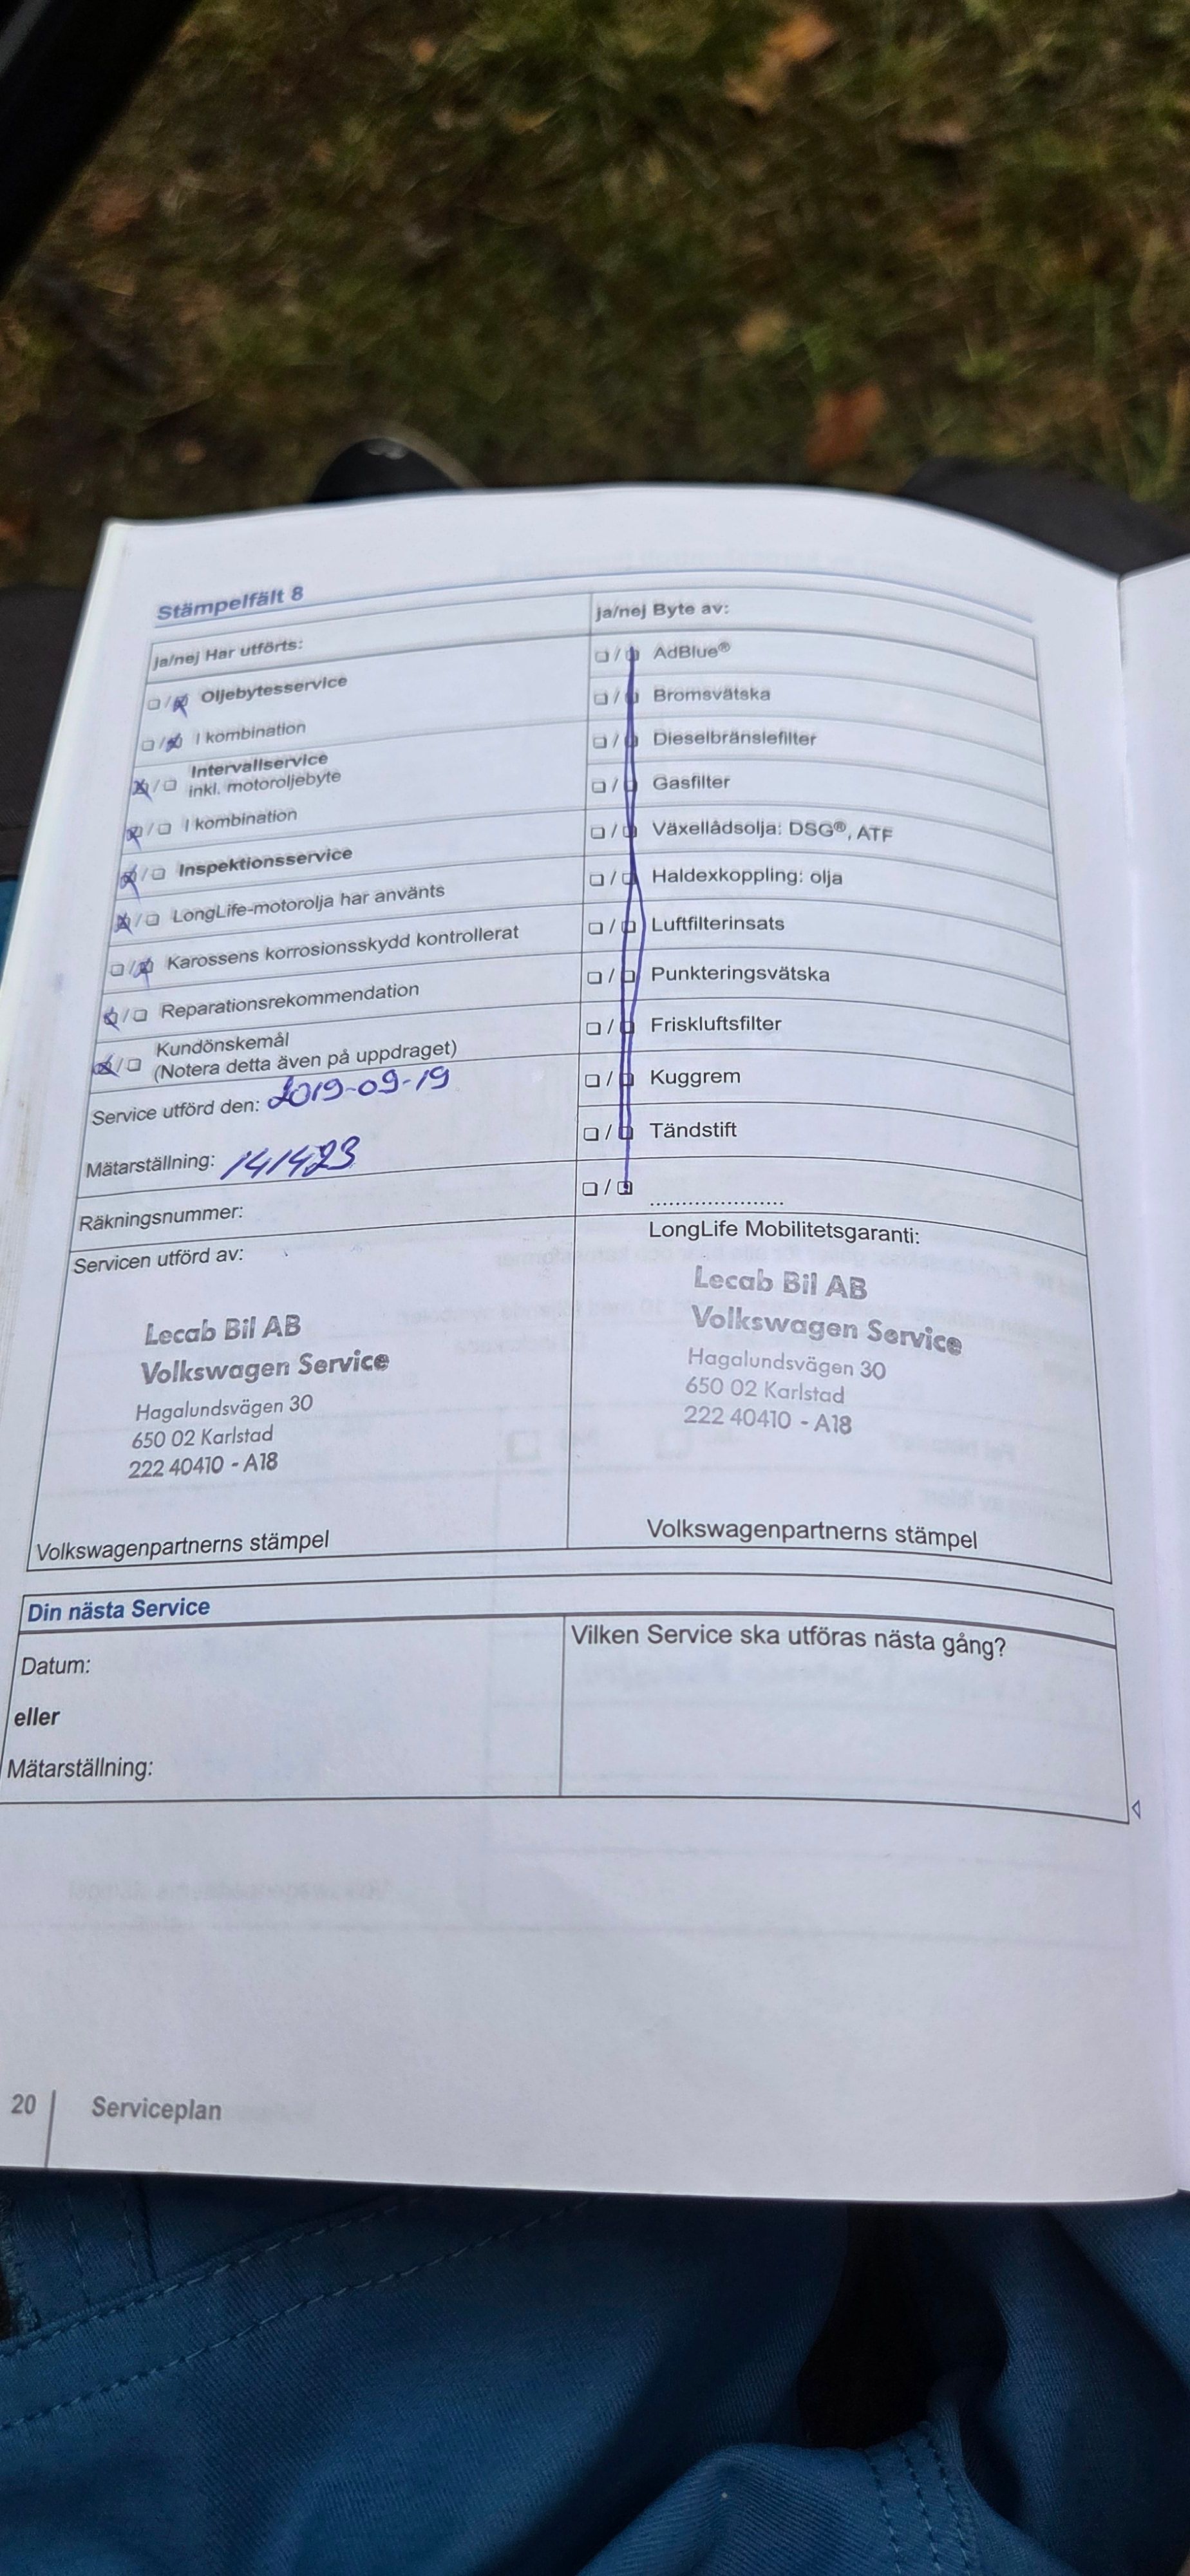 Stämpelfält 8
ja/nej Har utförts:
Oljebytesservice
I kombination
Intervallservice
inkl. motoroljebyte
I kombination
Inspektionsservice
LongLife-motorolja har använts
Karossens korrosionsskydd kontrollerat
Reparationsrekommendation
Kundönskemål
(Notera detta även på uppdraget)
Service utförd den: 2019-09-19
Mätarställning: 141423
Räkningsnummer:
Servicen utförd av:
Lecab Bil AB
Volkswagen Service
Hagalundsvägen 30
650 02 Karlstad
222 40410 - A18
Volkswagenpartnerns stämpel
ja/nej Byte av:
AdBlue®
Bromsvätska
Dieselbränslefilter
Gasfilter
Växellådsolja: DSG®, ATF
Haldexkoppling: olja
Luftfilterinsats
Punkteringsvätska
Friskluftsfilter
Kuggrem
Tändstift
....................
LongLife Mobilitetsgaranti:
Lecab Bil AB
Volkswagen Service
Hagalundsvägen 30
650 02 Karlstad
222 40410 - A18
Volkswagenpartnerns stämpel
Din nästa Service
Datum:
eller
Mätarställning:
Vilken Service ska utföras nästa gång?
20 Serviceplan